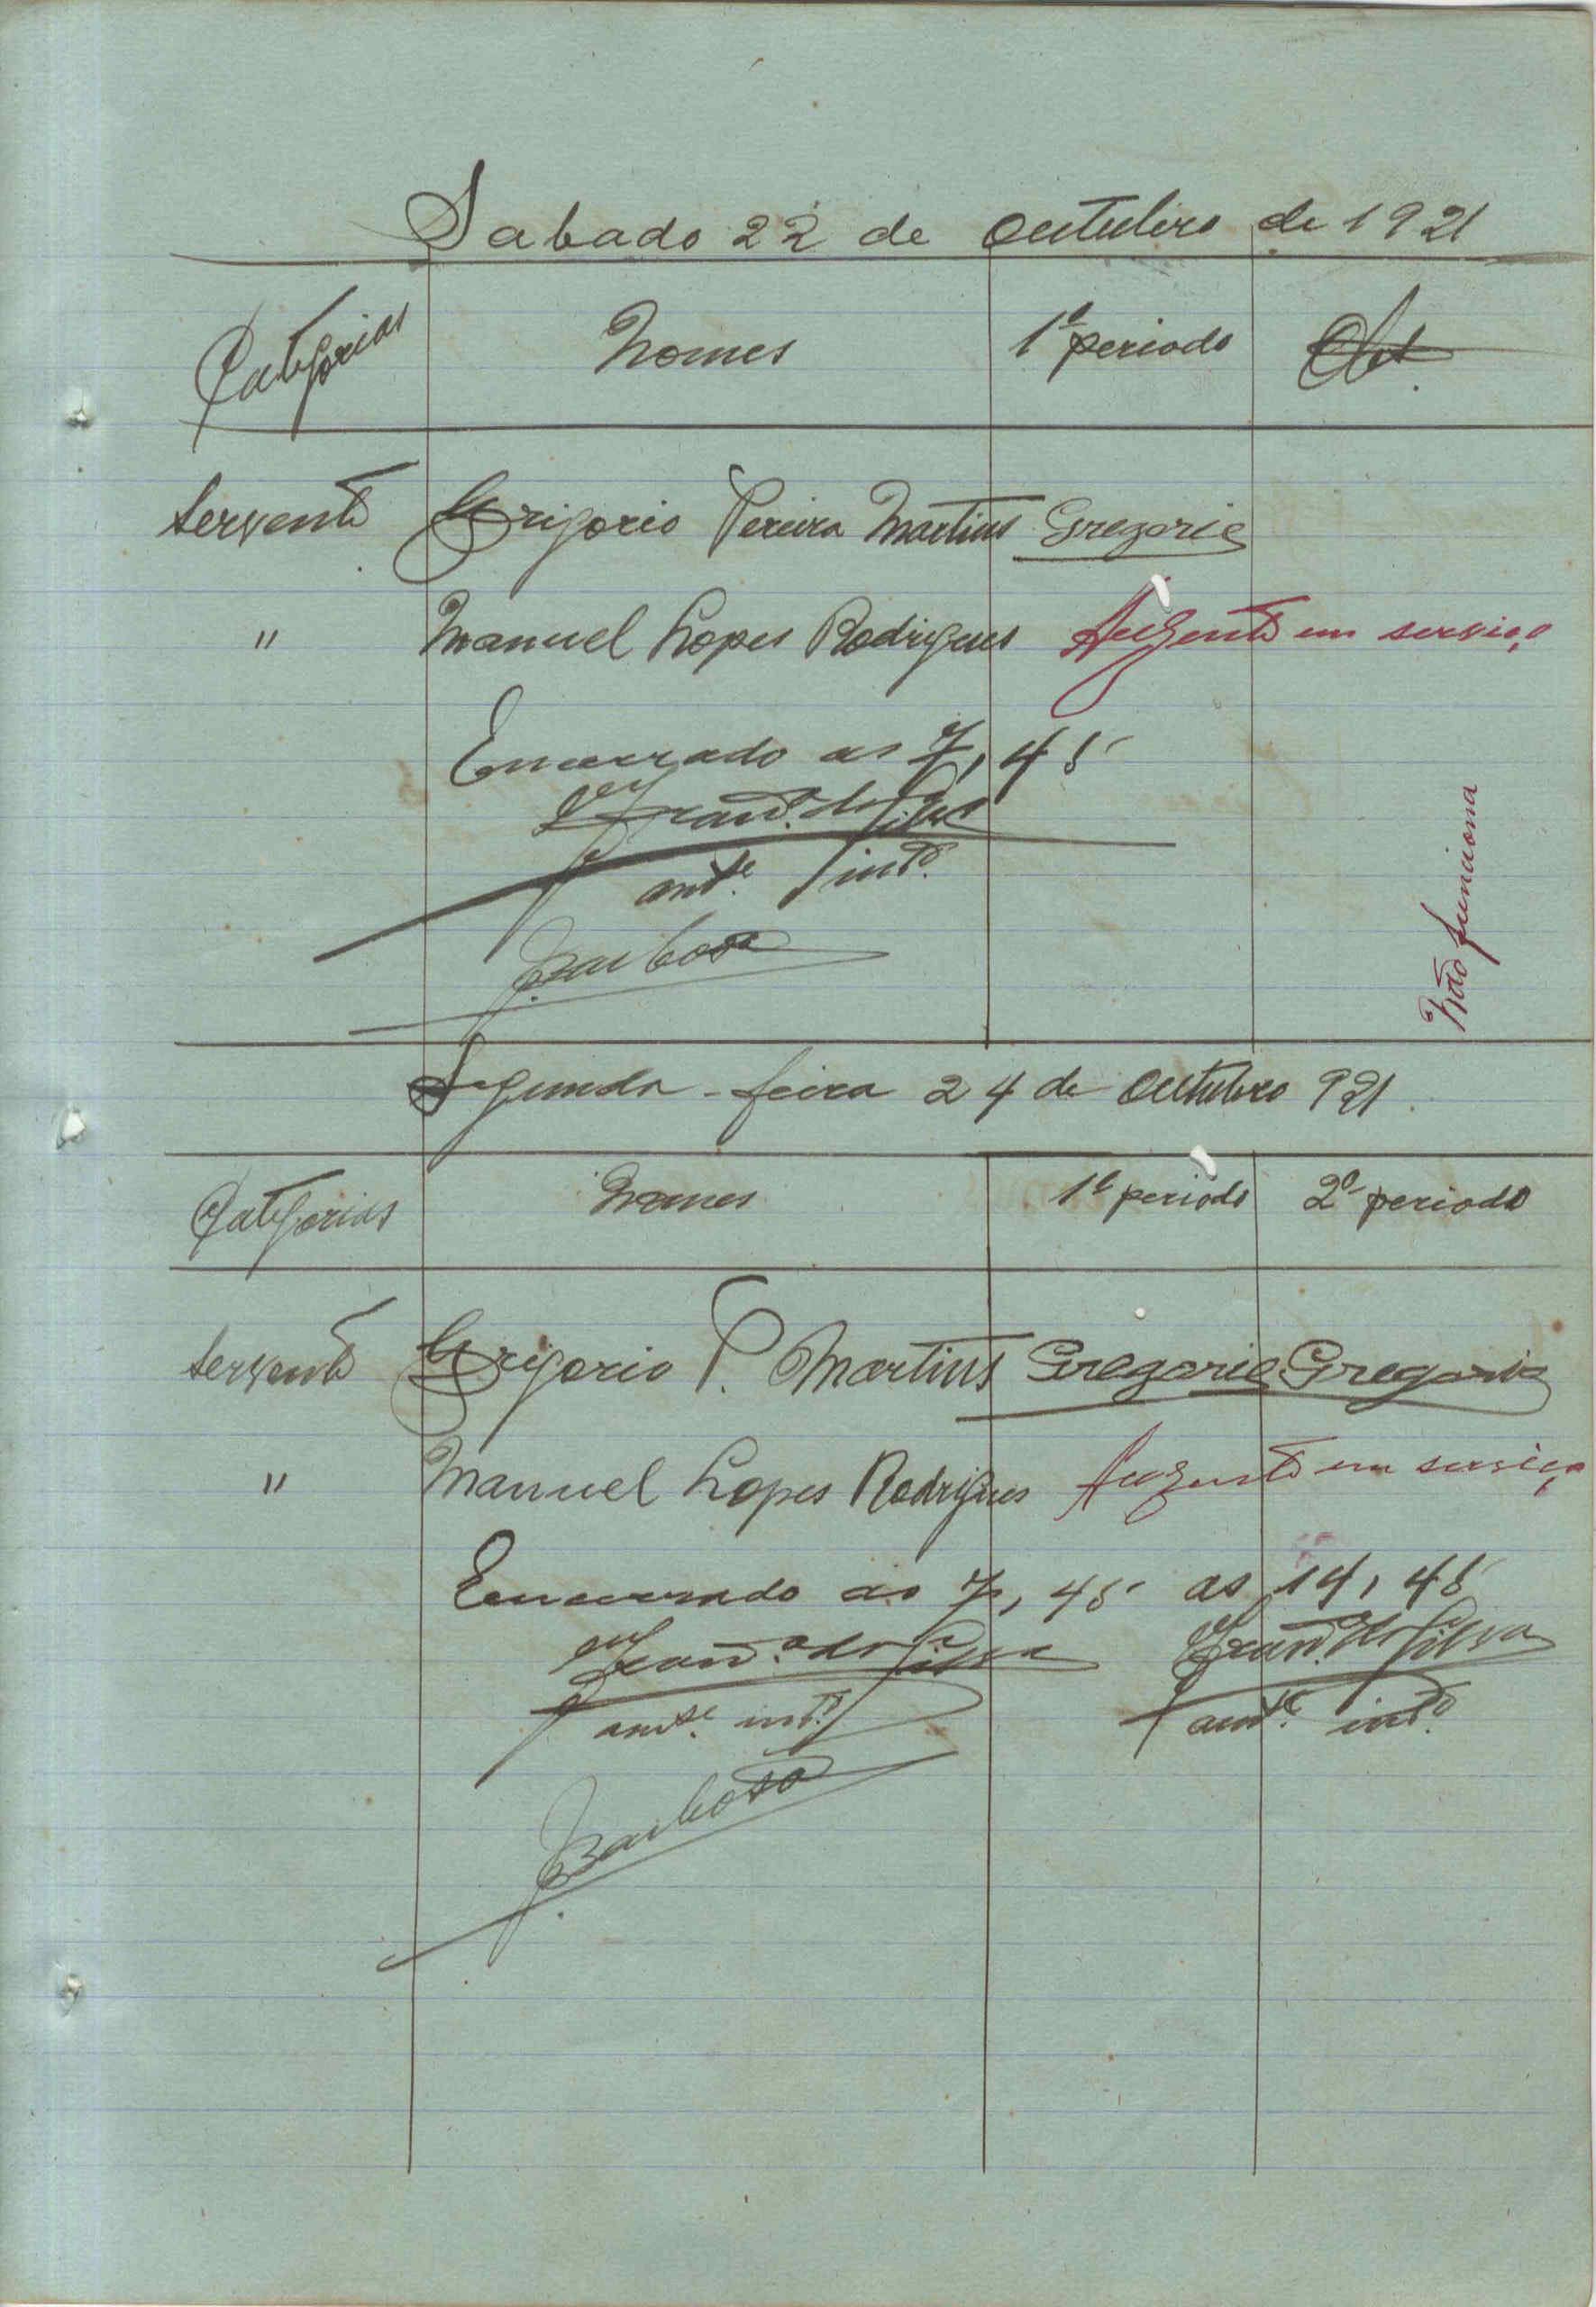 Sabado 22 de Outubro de 1921
Categorias Nomes 1º periodo Obs.
Servente Grigorio Pereira Martins Gregorio
" Manuel Lopes Rodrigues Auzente em serviço
Encerrado as 7,45
da Silva
int.º
Barbosa
Não funciona
Segunda-feira 24 de Outubro 921
Categorias Nomes 1º periodo 2º periodo
Servente Grigorio P. Martins Gregorio Gregorio
" Manuel Lopes Rodrigues Auzente em serviço
Encerrado as 7,45 as 14,45
da Silva da Silva
int.º int.º
Barbosa